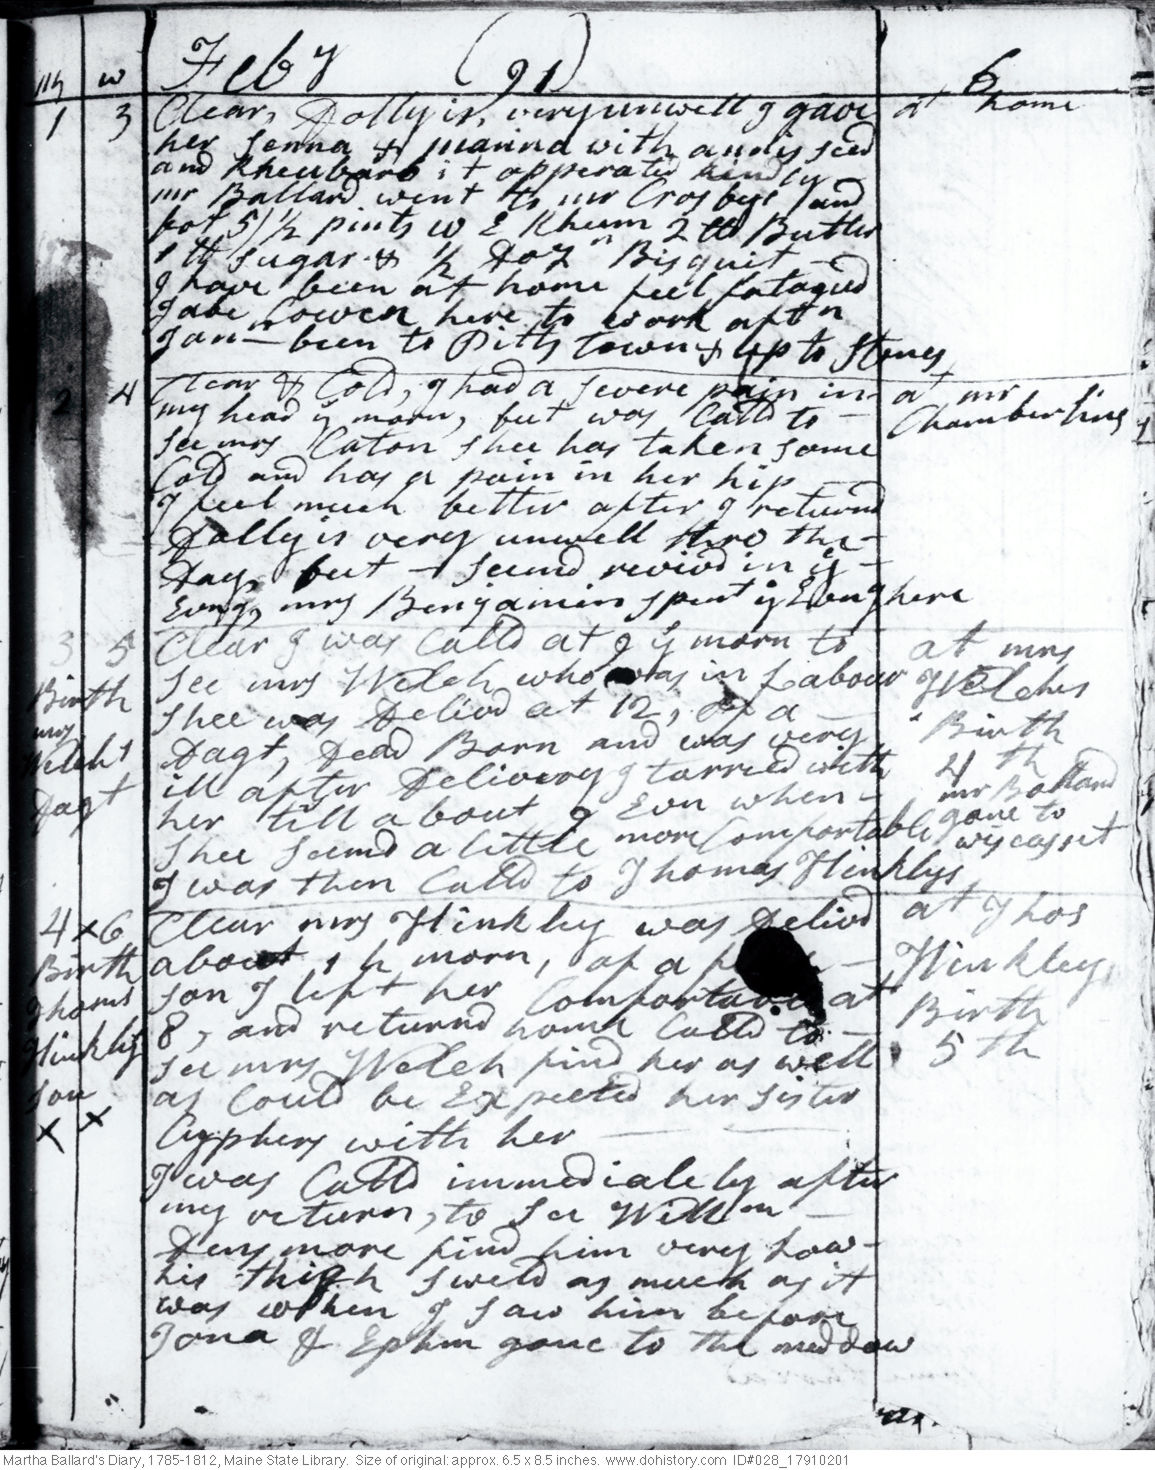 m w Feby (91) 6
1 3 Clear, Dolly is, very unwell I gave at home
her Senna & manna with annis seed
and Rheubarb it opperated kindly
mr Ballard went to mr Crosbys and
got 5 1/2 pints w E Rhum 2 tb Butter
1 tb sugar & 1/2 Dozn Bisquit
I have been at home feel fatagued
Jabe Cowen here to work aftn
Jonn been to Pitts town & up to Stones
2 4 Clear & Cold, I had a severe pain in at mr
my head ye morn, but was Calld to Chamberlins
see mrs Caton shee has taken some
Cold and has a pain in her hip
I feel much better after I returnd
Dolly is very unwell thro the
Day, but seemd revivd in ye
Evng, mrs Benjamin spent ye Evng here
3 5 Clear I was Calld at 9 ye morn to at mrs
Birth see mrs Welch who was in Labour Welches
mrs shee was Delivd at 12, of a Birth
Welchs Dagt, Dead Born and was very 4 th
Dagt ill after Delivery I tarried with mr Ballard
her till about 9 Evn when gone to
shee seemd a little more Comfortable wiscasset
I was then Calld to Thomas Hinklys
4 x 6 Clear mrs Hinkley was Delivd at Thos
Birth about 1 h morn, of a Hinkleys
Thoms son I left her Comfortable at Birth
Hinklys 8, and returnd home Calld to 5 th
son see mrs Welch find her as well
x x as Could be Expected her sister
Cyphers with her
I was Calld immediately after
my return, to see Willm
Densmore find him very low
his thigh sweld as much as it
was when I saw him before
Jona & Ephm gone to the meddow
Martha Ballard's Diary, 1785-1812, Maine State Library. Size of original: approx. 6.5 x 8.5 inches. www.dohistory.com ID#028_17910201